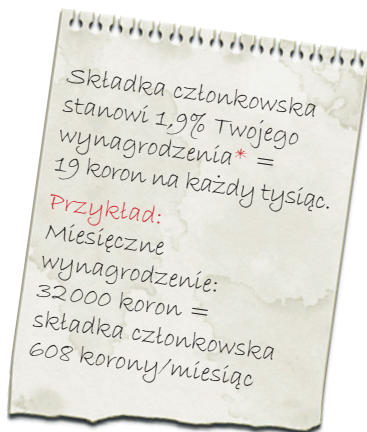 Składka członkowska
stanowi 1,9% Twojego
wynagrodzenia* =
19 koron na każdy tysiąc.
Przykład:
Miesięczne
wynagrodzenie:
32000 koron =
składka członkowska
608 korony/miesiąc